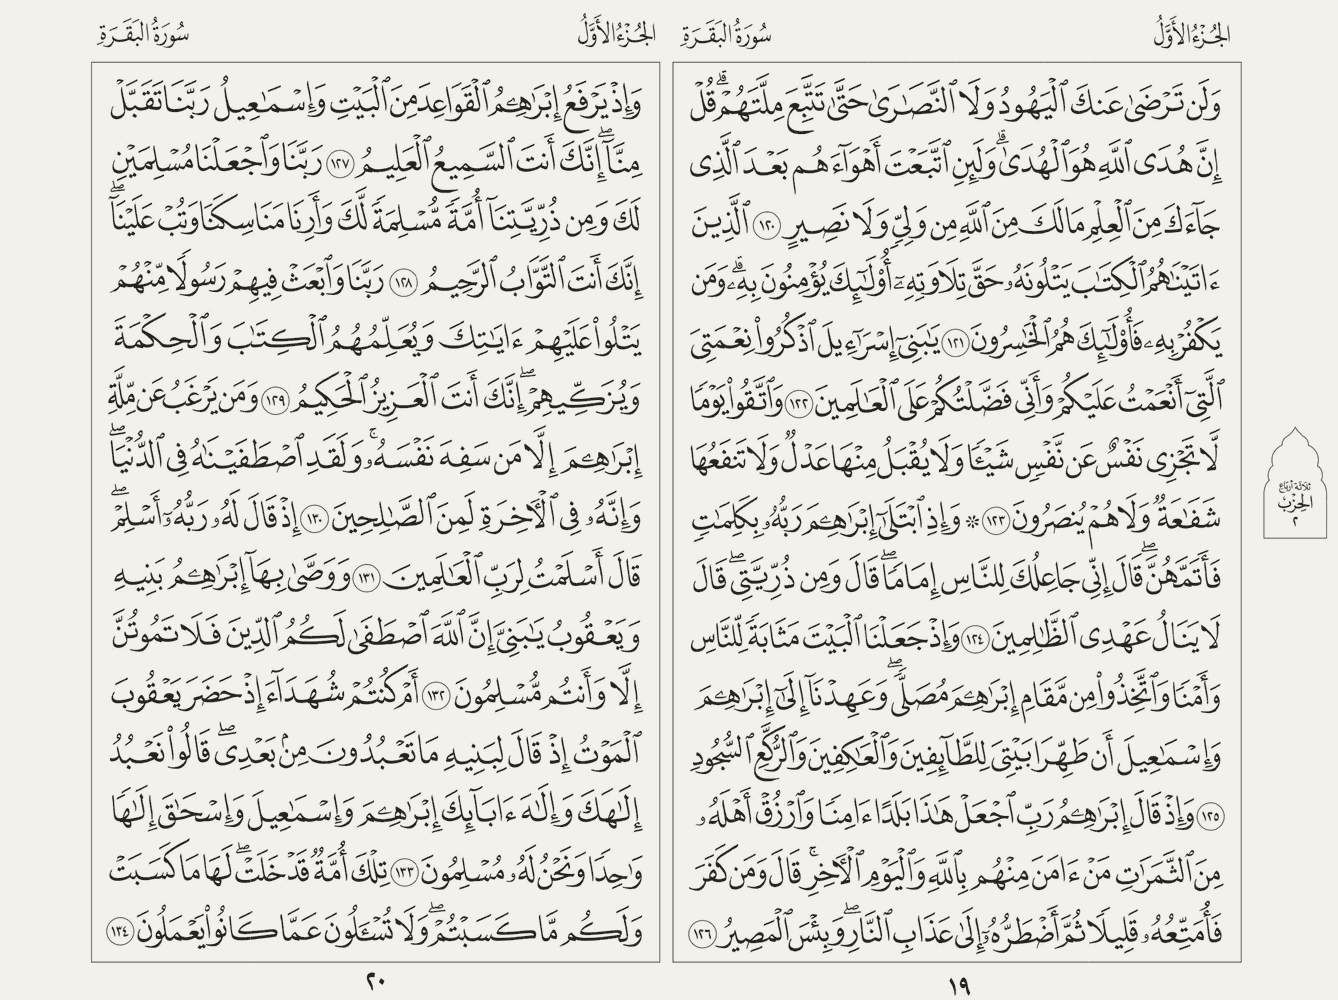 الجُزْءُ الأَوَّلُ
سُورَةُ البَقَرَةِ
وَلَن تَرْضَىٰ عَنكَ ٱلْيَهُودُ وَلَا ٱلنَّصَٰرَىٰ حَتَّىٰ تَتَّبِعَ مِلَّتَهُمْۗ قُلْ
إِنَّ هُدَى ٱللَّهِ هُوَ ٱلْهُدَىٰۗ وَلَئِنِ ٱتَّبَعْتَ أَهْوَآءَهُم بَعْدَ ٱلَّذِى
جَآءَكَ مِنَ ٱلْعِلْمِ مَا لَكَ مِنَ ٱللَّهِ مِن وَلِىٍّ وَلَا نَصِيرٍ ١٢٠ ٱلَّذِينَ
ءَاتَيْنَٰهُمُ ٱلْكِتَٰبَ يَتْلُونَهُۥ حَقَّ تِلَاوَتِهِۦٓ أُو۟لَٰٓئِكَ يُؤْمِنُونَ بِهِۦۗ وَمَن
يَكْفُرْ بِهِۦ فَأُو۟لَٰٓئِكَ هُمُ ٱلْخَٰسِرُونَ ١٢١ يَٰبَنِىٓ إِسْرَٰٓءِيلَ ٱذْكُرُوا۟ نِعْمَتِىَ
ٱلَّتِىٓ أَنْعَمْتُ عَلَيْكُمْ وَأَنِّى فَضَّلْتُكُمْ عَلَى ٱلْعَٰلَمِينَ ١٢٢ وَٱتَّقُوا۟ يَوْمًا
لَّا تَجْزِى نَفْسٌ عَن نَّفْسٍ شَيْـًٔا وَلَا يُقْبَلُ مِنْهَا عَدْلٌ وَلَا تَنفَعُهَا
شَفَٰعَةٌ وَلَا هُمْ يُنصَرُونَ ١٢٣ ۞ وَإِذِ ٱبْتَلَىٰٓ إِبْرَٰهِـۧمَ رَبُّهُۥ بِكَلِمَٰتٍ
فَأَتَمَّهُنَّۖ قَالَ إِنِّى جَاعِلُكَ لِلنَّاسِ إِمَامًاۖ قَالَ وَمِن ذُرِّيَّتِىۖ قَالَ
لَا يَنَالُ عَهْدِى ٱلظَّٰلِمِينَ ١٢٤ وَإِذْ جَعَلْنَا ٱلْبَيْتَ مَثَابَةً لِّلنَّاسِ
وَأَمْنًا وَٱتَّخِذُوا۟ مِن مَّقَامِ إِبْرَٰهِـۧمَ مُصَلًّىۖ وَعَهِدْنَآ إِلَىٰٓ إِبْرَٰهِـۧمَ
وَإِسْمَٰعِيلَ أَن طَهِّرَا بَيْتِىَ لِلطَّآئِفِينَ وَٱلْعَٰكِفِينَ وَٱلرُّكَّعِ ٱلسُّجُودِ
١٢٥ وَإِذْ قَالَ إِبْرَٰهِـۧمُ رَبِّ ٱجْعَلْ هَٰذَا بَلَدًا ءَامِنًا وَٱرْزُقْ أَهْلَهُۥ
مِنَ ٱلثَّمَرَٰتِ مَنْ ءَامَنَ مِنْهُم بِٱللَّهِ وَٱلْيَوْمِ ٱلْـَٔاخِرِۚ قَالَ وَمَن كَفَرَ
فَأُمَتِّعُهُۥ قَلِيلًا ثُمَّ أَضْطَرُّهُۥٓ إِلَىٰ عَذَابِ ٱلنَّارِۖ وَبِئْسَ ٱلْمَصِيرُ ١٢٦
١٩
ثلاثة أرباع
الحِزْب
٢
الجُزْءُ الأَوَّلُ
سُورَةُ البَقَرَةِ
وَإِذْ يَرْفَعُ إِبْرَٰهِـۧمُ ٱلْقَوَاعِدَ مِنَ ٱلْبَيْتِ وَإِسْمَٰعِيلُ رَبَّنَا تَقَبَّلْ
مِنَّآۖ إِنَّكَ أَنتَ ٱلسَّمِيعُ ٱلْعَلِيمُ ١٢٧ رَبَّنَا وَٱجْعَلْنَا مُسْلِمَيْنِ
لَكَ وَمِن ذُرِّيَّتِنَآ أُمَّةً مُّسْلِمَةً لَّكَ وَأَرِنَا مَنَاسِكَنَا وَتُبْ عَلَيْنَآۖ
إِنَّكَ أَنتَ ٱلتَّوَّابُ ٱلرَّحِيمُ ١٢٨ رَبَّنَا وَٱبْعَثْ فِيهِمْ رَسُولًا مِّنْهُمْ
يَتْلُوا۟ عَلَيْهِمْ ءَايَٰتِكَ وَيُعَلِّمُهُمُ ٱلْكِتَٰبَ وَٱلْحِكْمَةَ
وَيُزَكِّيهِمْۖ إِنَّكَ أَنتَ ٱلْعَزِيزُ ٱلْحَكِيمُ ١٢٩ وَمَن يَرْغَبُ عَن مِّلَّةِ
إِبْرَٰهِـۧمَ إِلَّا مَن سَفِهَ نَفْسَهُۥۚ وَلَقَدِ ٱصْطَفَيْنَٰهُ فِى ٱلدُّنْيَاۖ
وَإِنَّهُۥ فِى ٱلْـَٔاخِرَةِ لَمِنَ ٱلصَّٰلِحِينَ ١٣٠ إِذْ قَالَ لَهُۥ رَبُّهُۥٓ أَسْلِمْۖ
قَالَ أَسْلَمْتُ لِرَبِّ ٱلْعَٰلَمِينَ ١٣١ وَوَصَّىٰ بِهَآ إِبْرَٰهِـۧمُ بَنِيهِ
وَيَعْقُوبُ يَٰبَنِىَّ إِنَّ ٱللَّهَ ٱصْطَفَىٰ لَكُمُ ٱلدِّينَ فَلَا تَمُوتُنَّ
إِلَّا وَأَنتُم مُّسْلِمُونَ ١٣٢ أَمْ كُنتُمْ شُهَدَآءَ إِذْ حَضَرَ يَعْقُوبَ
ٱلْمَوْتُ إِذْ قَالَ لِبَنِيهِ مَا تَعْبُدُونَ مِنۢ بَعْدِىۖ قَالُوا۟ نَعْبُدُ
إِلَٰهَكَ وَإِلَٰهَ ءَابَآئِكَ إِبْرَٰهِـۧمَ وَإِسْمَٰعِيلَ وَإِسْحَٰقَ إِلَٰهًا
وَٰحِدًا وَنَحْنُ لَهُۥ مُسْلِمُونَ ١٣٣ تِلْكَ أُمَّةٌ قَدْ خَلَتْۖ لَهَا مَا كَسَبَتْ
وَلَكُم مَّا كَسَبْتُمْۖ وَلَا تُسْـَٔلُونَ عَمَّا كَانُوا۟ يَعْمَلُونَ ١٣٤
٢٠